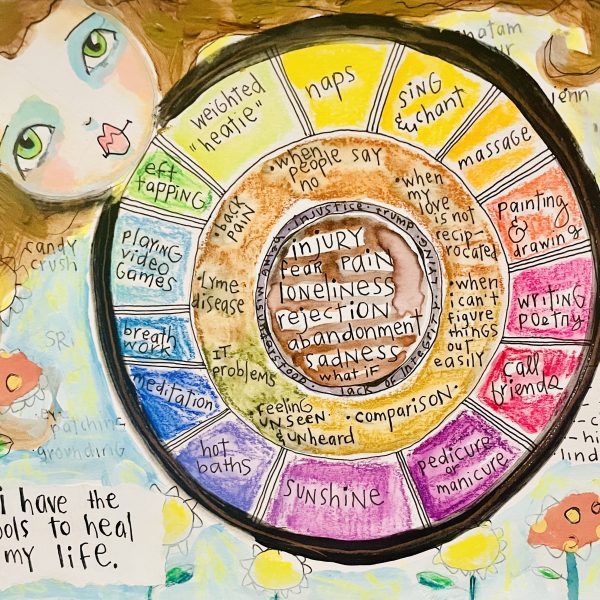 natam
ur
jenn
weighted
"heatie"
naps
sing
& chant
massage
painting
&
drawing
writing
poetry
call
friends
pedicure
or
manicure
sunshine
hot
baths
meditation
breath
work
playing
video
games
eft
tapping
·when
people say
no
·when
my
love
is not
recip-
rocated
·when
i can't
figure
things
out
easily
·comparison·
·feeling
unseen
& unheard
IT
problems
·Lyme
disease
·back
pain
·injustice·trump·LYING·
lack of integrity·
being misunderstood·
injury
fear pain
loneliness
rejection
abandonment
sadness
what if
candy
crush
SRI
patching
grounding
i have the
ools to heal
my life.